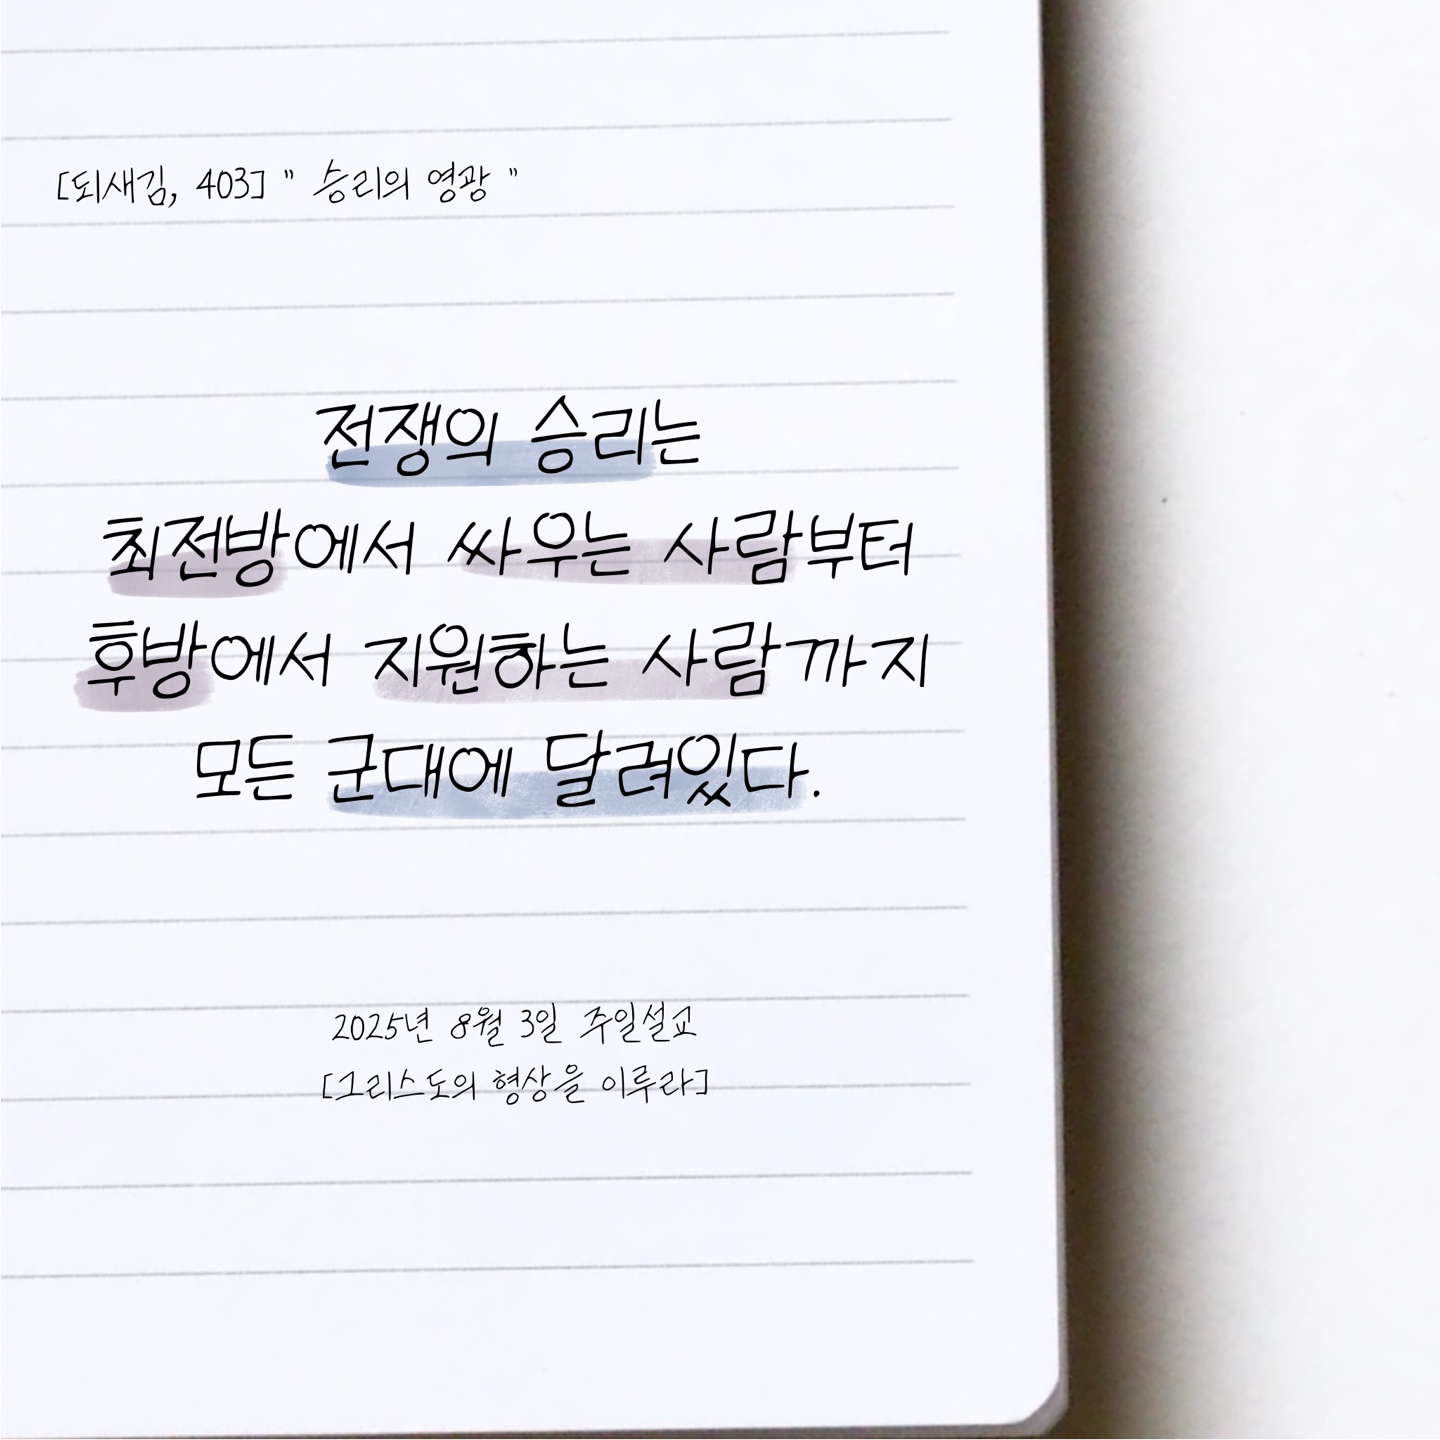 [되새김, 403] " 승리의 영광 "
전쟁의 승리는
최전방에서 싸우는 사람부터
후방에서 지원하는 사람까지
모든 군대에 달려있다.
2025년 8월 3일 주일설교
[그리스도의 형상을 이루라]